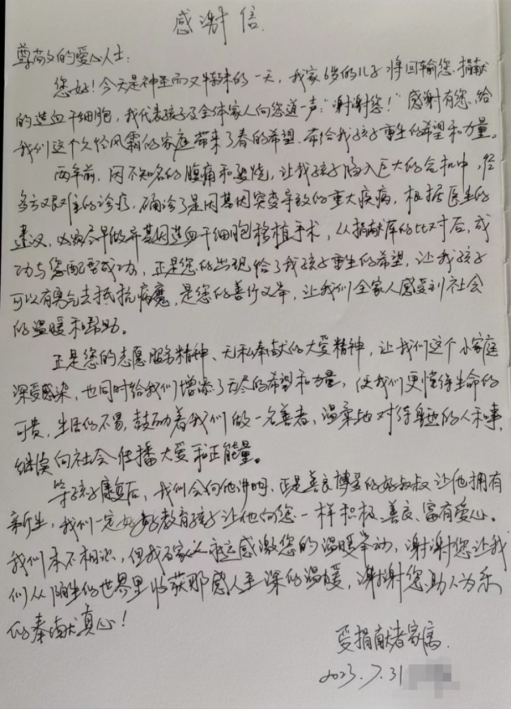 感谢信
尊敬的爱心人士：
您好！今天是神圣而又特殊的一天，我家6岁的儿子将回输您捐献
的造血干细胞，我代表孩子及全体家人向您道一声："谢谢您！"感谢有您，给
我们这个久经风霜的家庭带来了春的希望，带给我孩子重生的希望和力量。
两年前，因不知名的腹痛和发烧，让我孩子陷入巨大的危机中，经
多方医生的诊疗，确诊了是因基因突变导致的重大疾病，根据医生的
建议，必须尽早做异基因造血干细胞移植手术，从捐献库的比对后，成
功与您配型成功，正是您的出现给了我孩子重生的希望，让我孩子
可以有勇气去抵抗病魔，是您的善行义举，让我们全家人感受到社会
的温暖和帮助。
正是您的志愿服务精神、无私奉献的大爱精神，让我们这个小家庭
深受感染，也同时给我们增添了无尽的希望和力量，使我们更懂得生命的
可贵，生活的不易，鼓励着我们做一名善者，温柔地对待身边的人和事，
继续向社会传播大爱和正能量。
等孩子康复后，我们会向他讲明，正是善良博爱的好叔叔让他拥有
新生，我们一定好好教育孩子让他向您一样积极、善良、富有爱心。
我们本不相识，但我家人永远感激您的温暖举动，谢谢您让我
们从陌生的世界里收获那感人至深的温暖，谢谢您助人为乐
的奉献真心！
受捐献者家属
2023.7.31